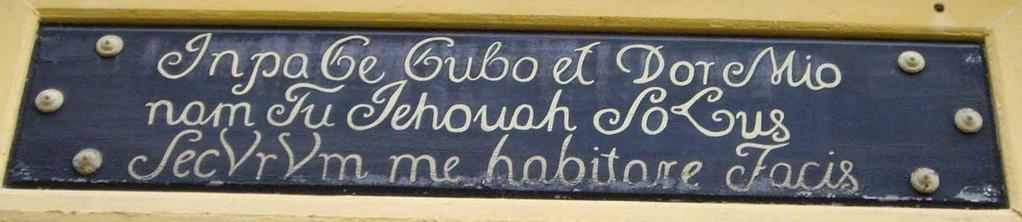 In paCe Cubo et DorMio
nam Tu Jehouah SoLus
SecVrVm me habitare Facis